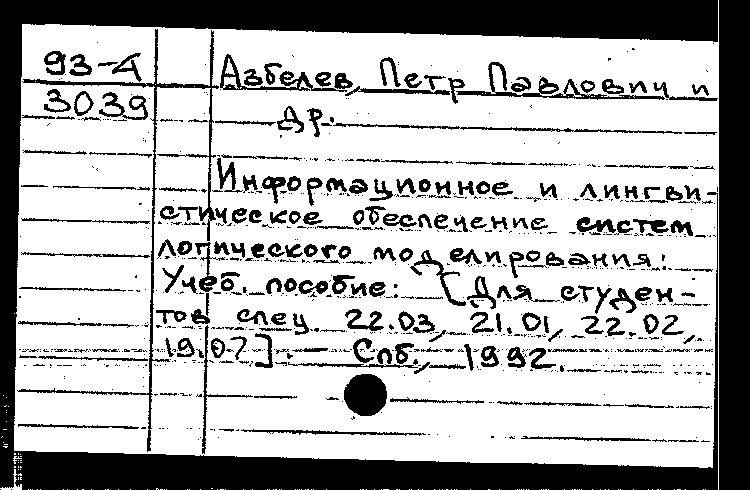 93-4
3039
Азбелев, Петр Павлович и
др.
Информационное и лингви-
стическое обеспечение систем
логического моделирования:
Учеб. пособие: [Для студен-
тов спец. 22.03, 21.01, 22.02,
19.07]. — Спб., 1992.